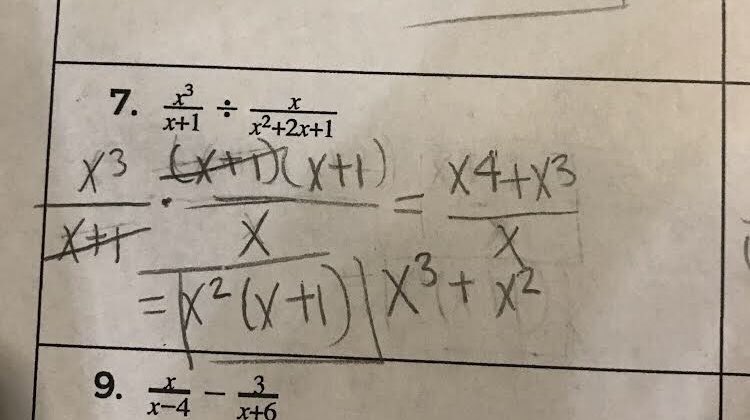 7. x³/(x+1) ÷ x/(x²+2x+1)
x³/(x+1) · (x+1)(x+1)/x = (x4+x³)/x
= x²(x+1) x³+x²
9. x/(x−4) − 3/(x+6)